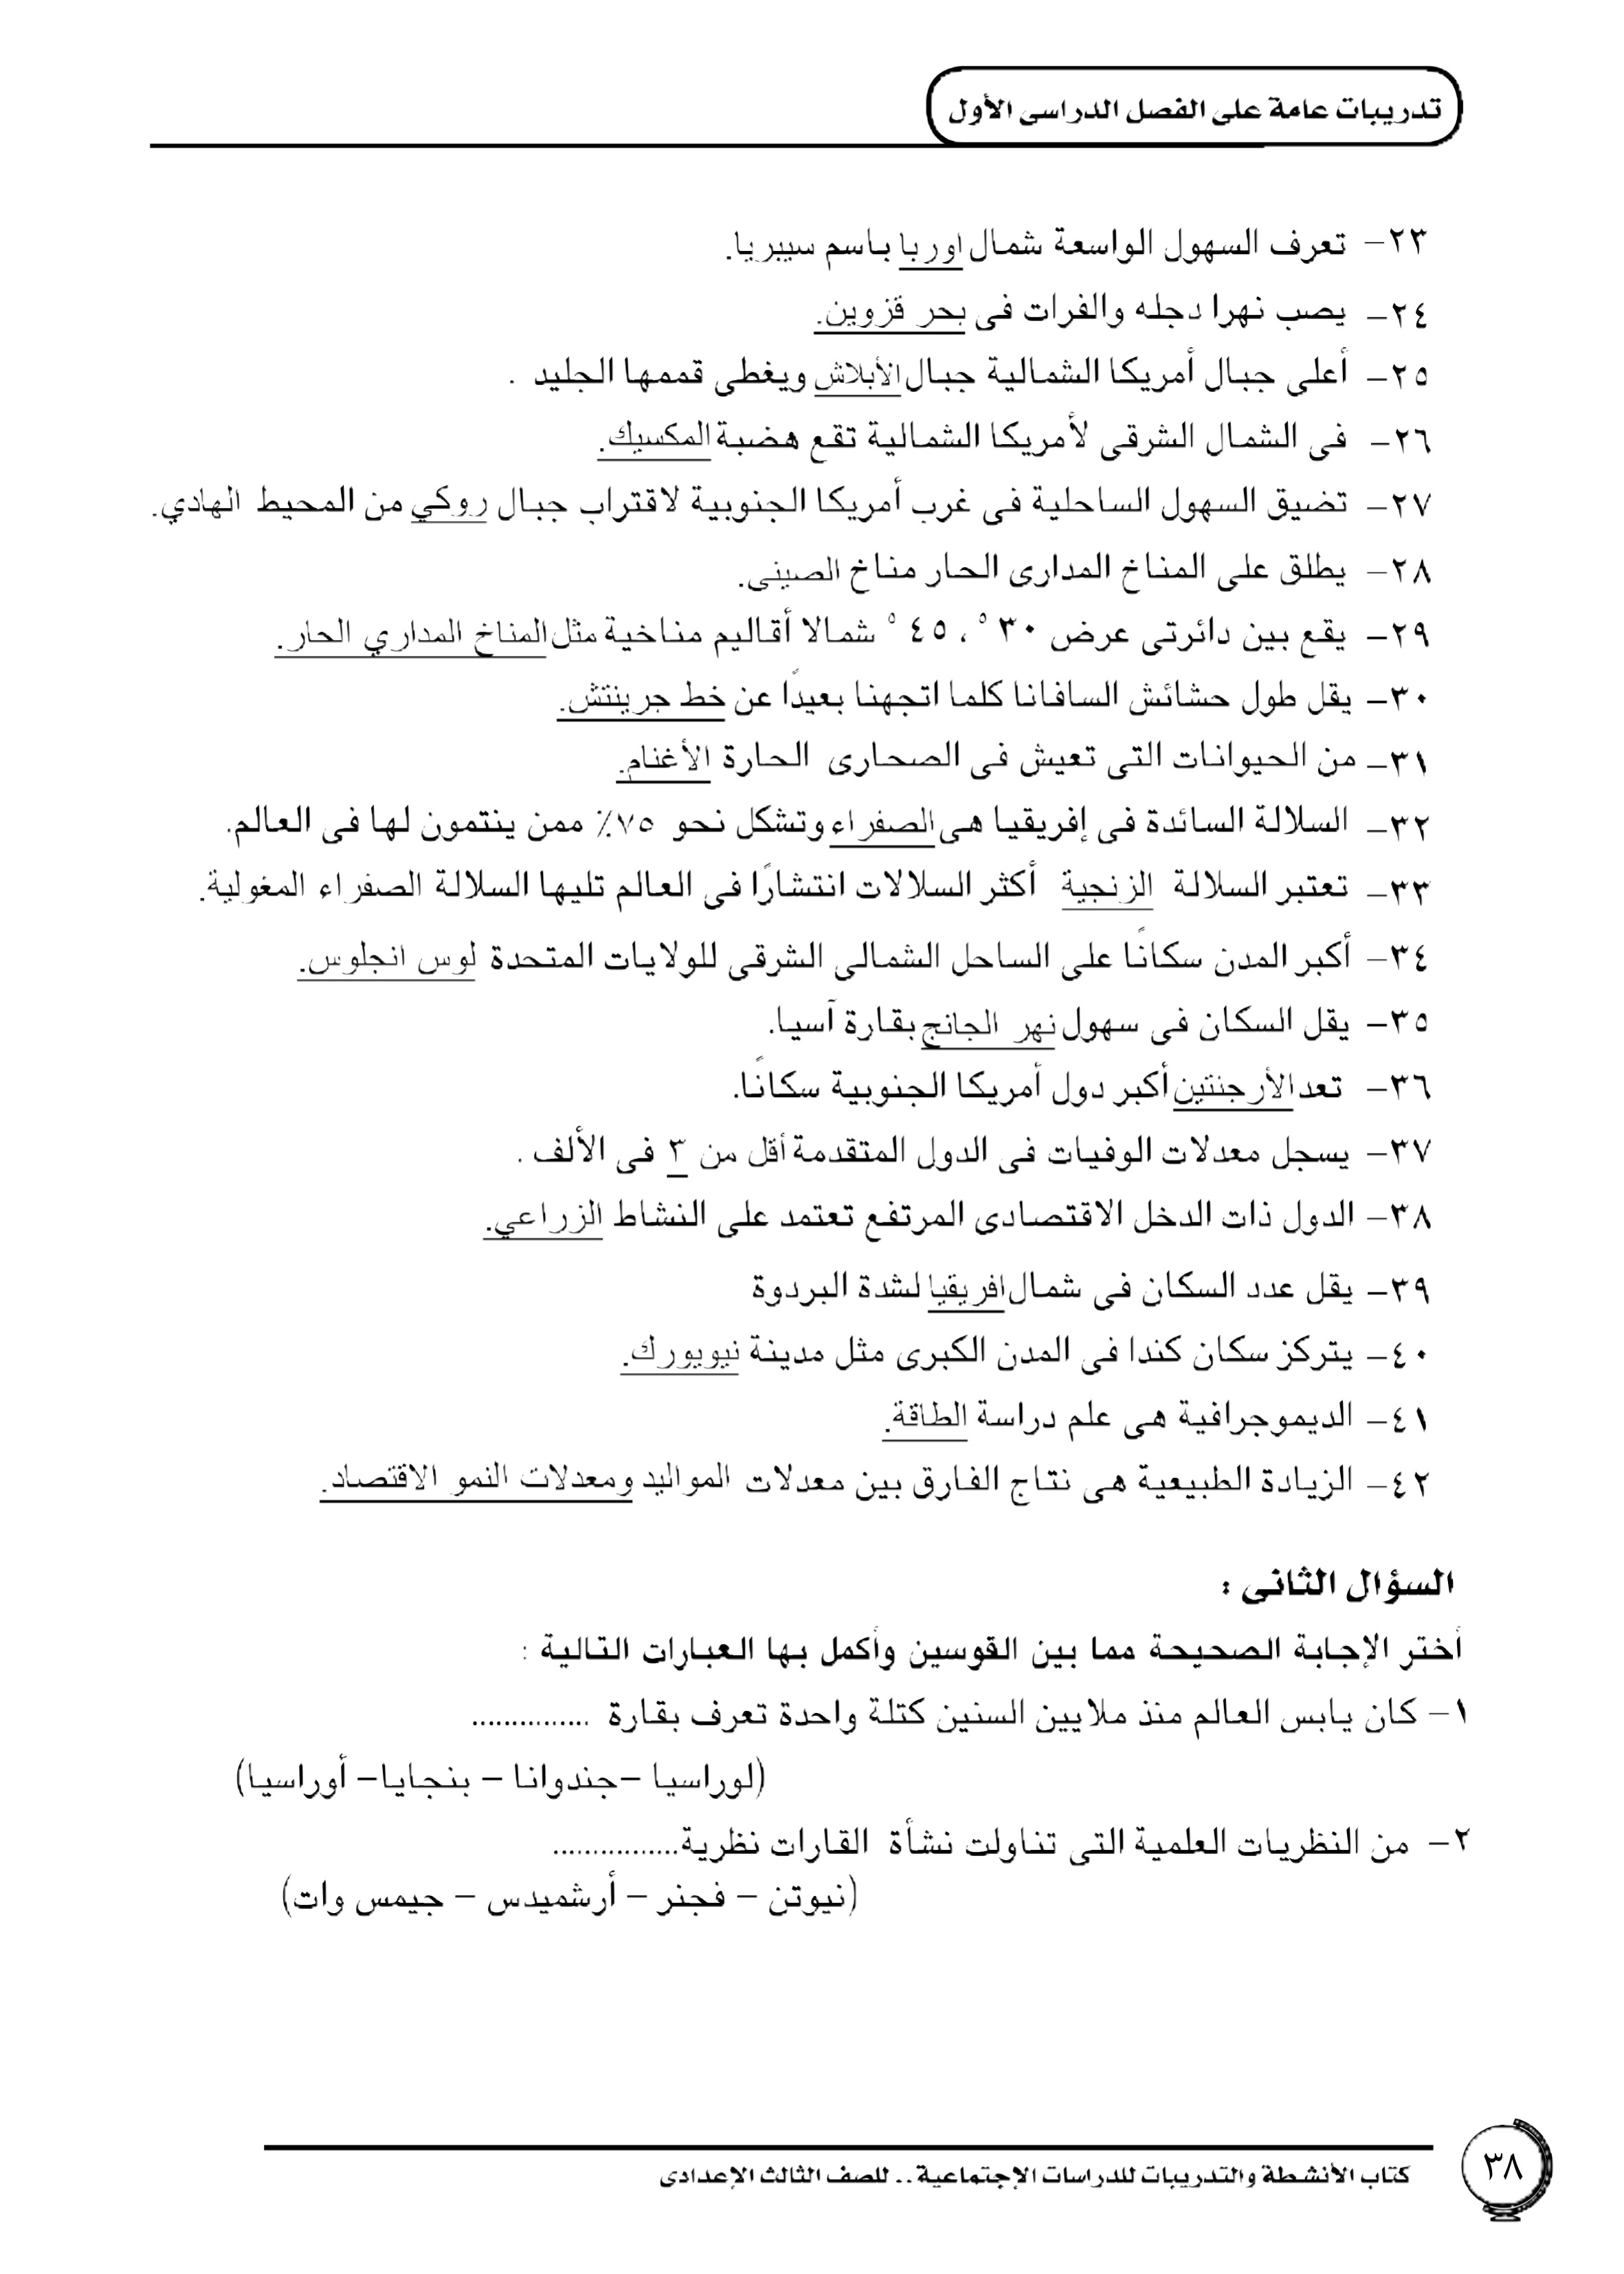 تدريبات عامة على الفصل الدراسى الأول
٢٣- تعرف السهول الواسعة شمال اوربا باسم سيبريا.
٢٤- يصب نهرا دجله والفرات فى بحر قزوين.
٢٥- أعلى جبال أمريكا الشمالية جبال الأبلاش ويغطى قممها الجليد .
٢٦- فى الشمال الشرقى لأمريكا الشمالية تقع هضبة المكسيك.
٢٧- تضيق السهول الساحلية فى غرب أمريكا الجنوبية لاقتراب جبال روكي من المحيط الهادي.
٢٨- يطلق على المناخ المدارى الحار مناخ الصينى.
٢٩- يقع بين دائرتى عرض ٣٠ ° ، ٤٥ ° شمالا أقاليم مناخية مثل المناخ المداري الحار.
٣٠- يقل طول حشائش السافانا كلما اتجهنا بعيدًا عن خط جرينتش.
٣١- من الحيوانات التى تعيش فى الصحارى الحارة الأغنام.
٣٢- السلالة السائدة فى إفريقيا هى الصفراء وتشكل نحو ٧٥٪ ممن ينتمون لها فى العالم.
٣٣- تعتبر السلالة الزنجية أكثر السلالات انتشارًا فى العالم تليها السلالة الصفراء المغولية.
٣٤- أكبر المدن سكانًا على الساحل الشمالى الشرقى للولايات المتحدة لوس انجلوس.
٣٥- يقل السكان فى سهول نهر الجانج بقارة آسيا.
٣٦- تعد الأرجنتين أكبر دول أمريكا الجنوبية سكانًا.
٣٧- يسجل معدلات الوفيات فى الدول المتقدمة أقل من ٣ فى الألف .
٣٨- الدول ذات الدخل الاقتصادى المرتفع تعتمد على النشاط الزراعي.
٣٩- يقل عدد السكان فى شمال افريقيا لشدة البردوة
٤٠- يتركز سكان كندا فى المدن الكبرى مثل مدينة نيويورك.
٤١- الديموجرافية هى علم دراسة الطاقة.
٤٢- الزيادة الطبيعية هى نتاج الفارق بين معدلات المواليد ومعدلات النمو الاقتصاد.
السؤال الثانى :
أختر الإجابة الصحيحة مما بين القوسين وأكمل بها العبارات التالية :
١- كان يابس العالم منذ ملايين السنين كتلة واحدة تعرف بقارة ...............
(لوراسيا -جندوانا - بنجايا- أوراسيا)
٢- من النظريات العلمية التى تناولت نشأة القارات نظرية................
(نيوتن - فجنر - أرشميدس - جيمس وات)
كتاب الأنشطة والتدريبات للدراسات الإجتماعية .. للصف الثالث الإعدادى
٣٨